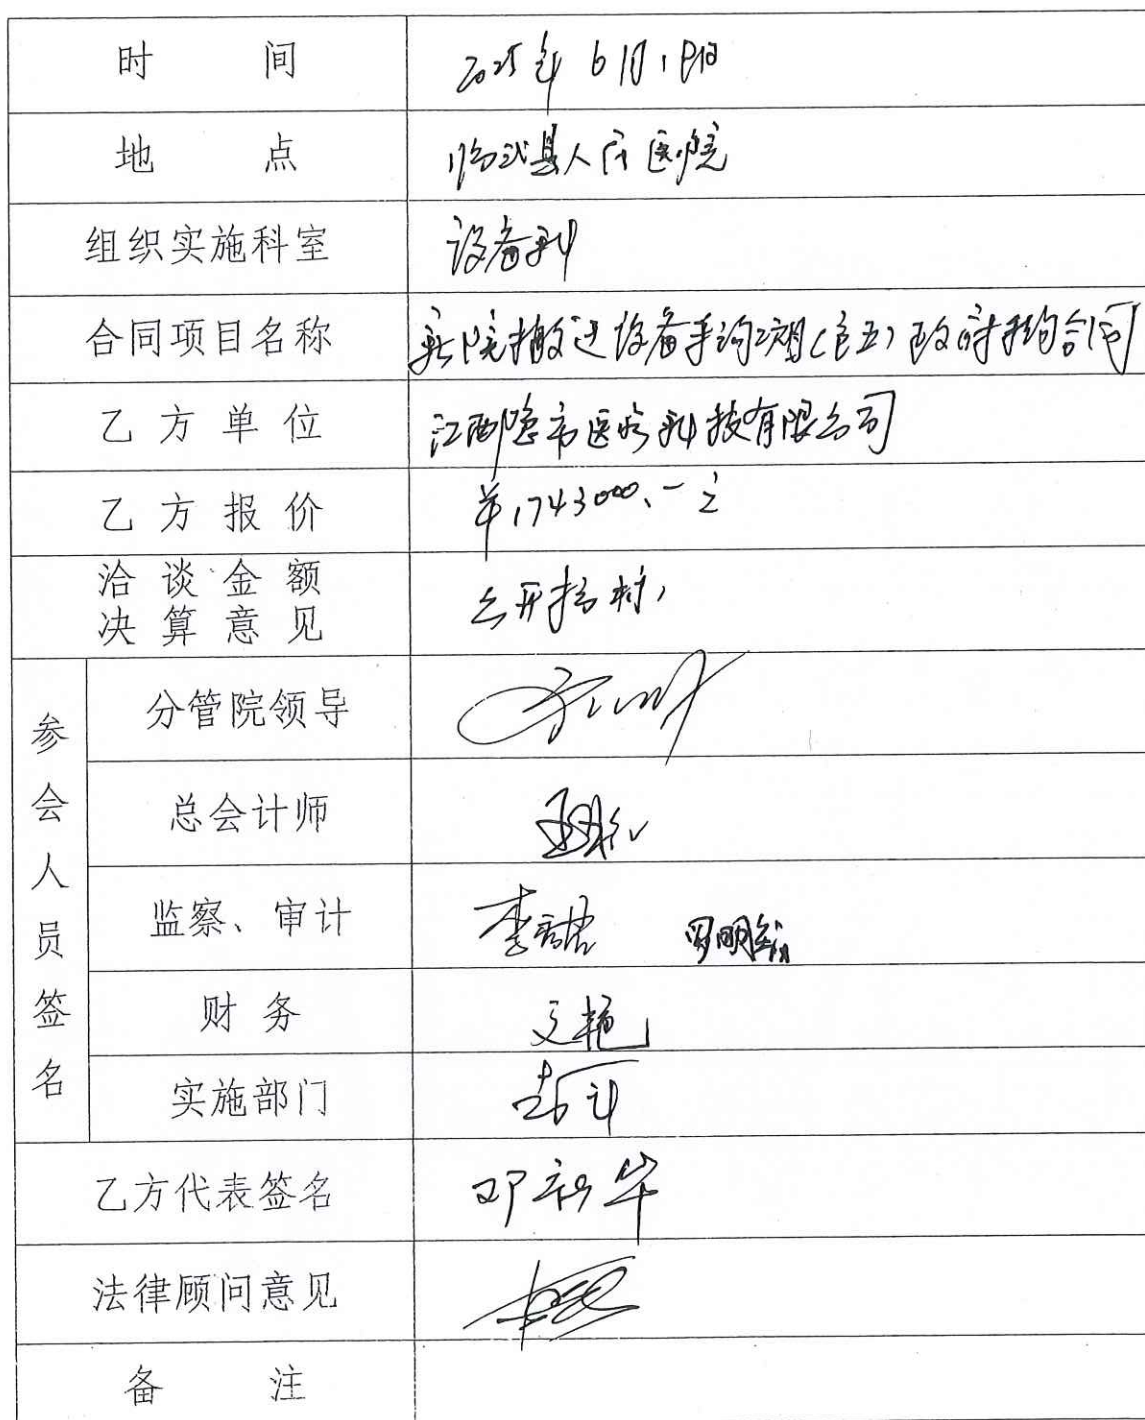 时 间 2025年6月18日
地 点 临武县人民医院
组织实施科室 设备科
合同项目名称 新院搬迁设备采购二期(包五)政府采购合同
乙方单位 江西隐市医疗科技有限公司
乙方报价 ¥1743000.-元
洽谈金额
决算意见 公开招标
参会人员签名
分管院领导
总会计师
监察、审计
财务 文艳
实施部门
乙方代表签名
法律顾问意见
备 注